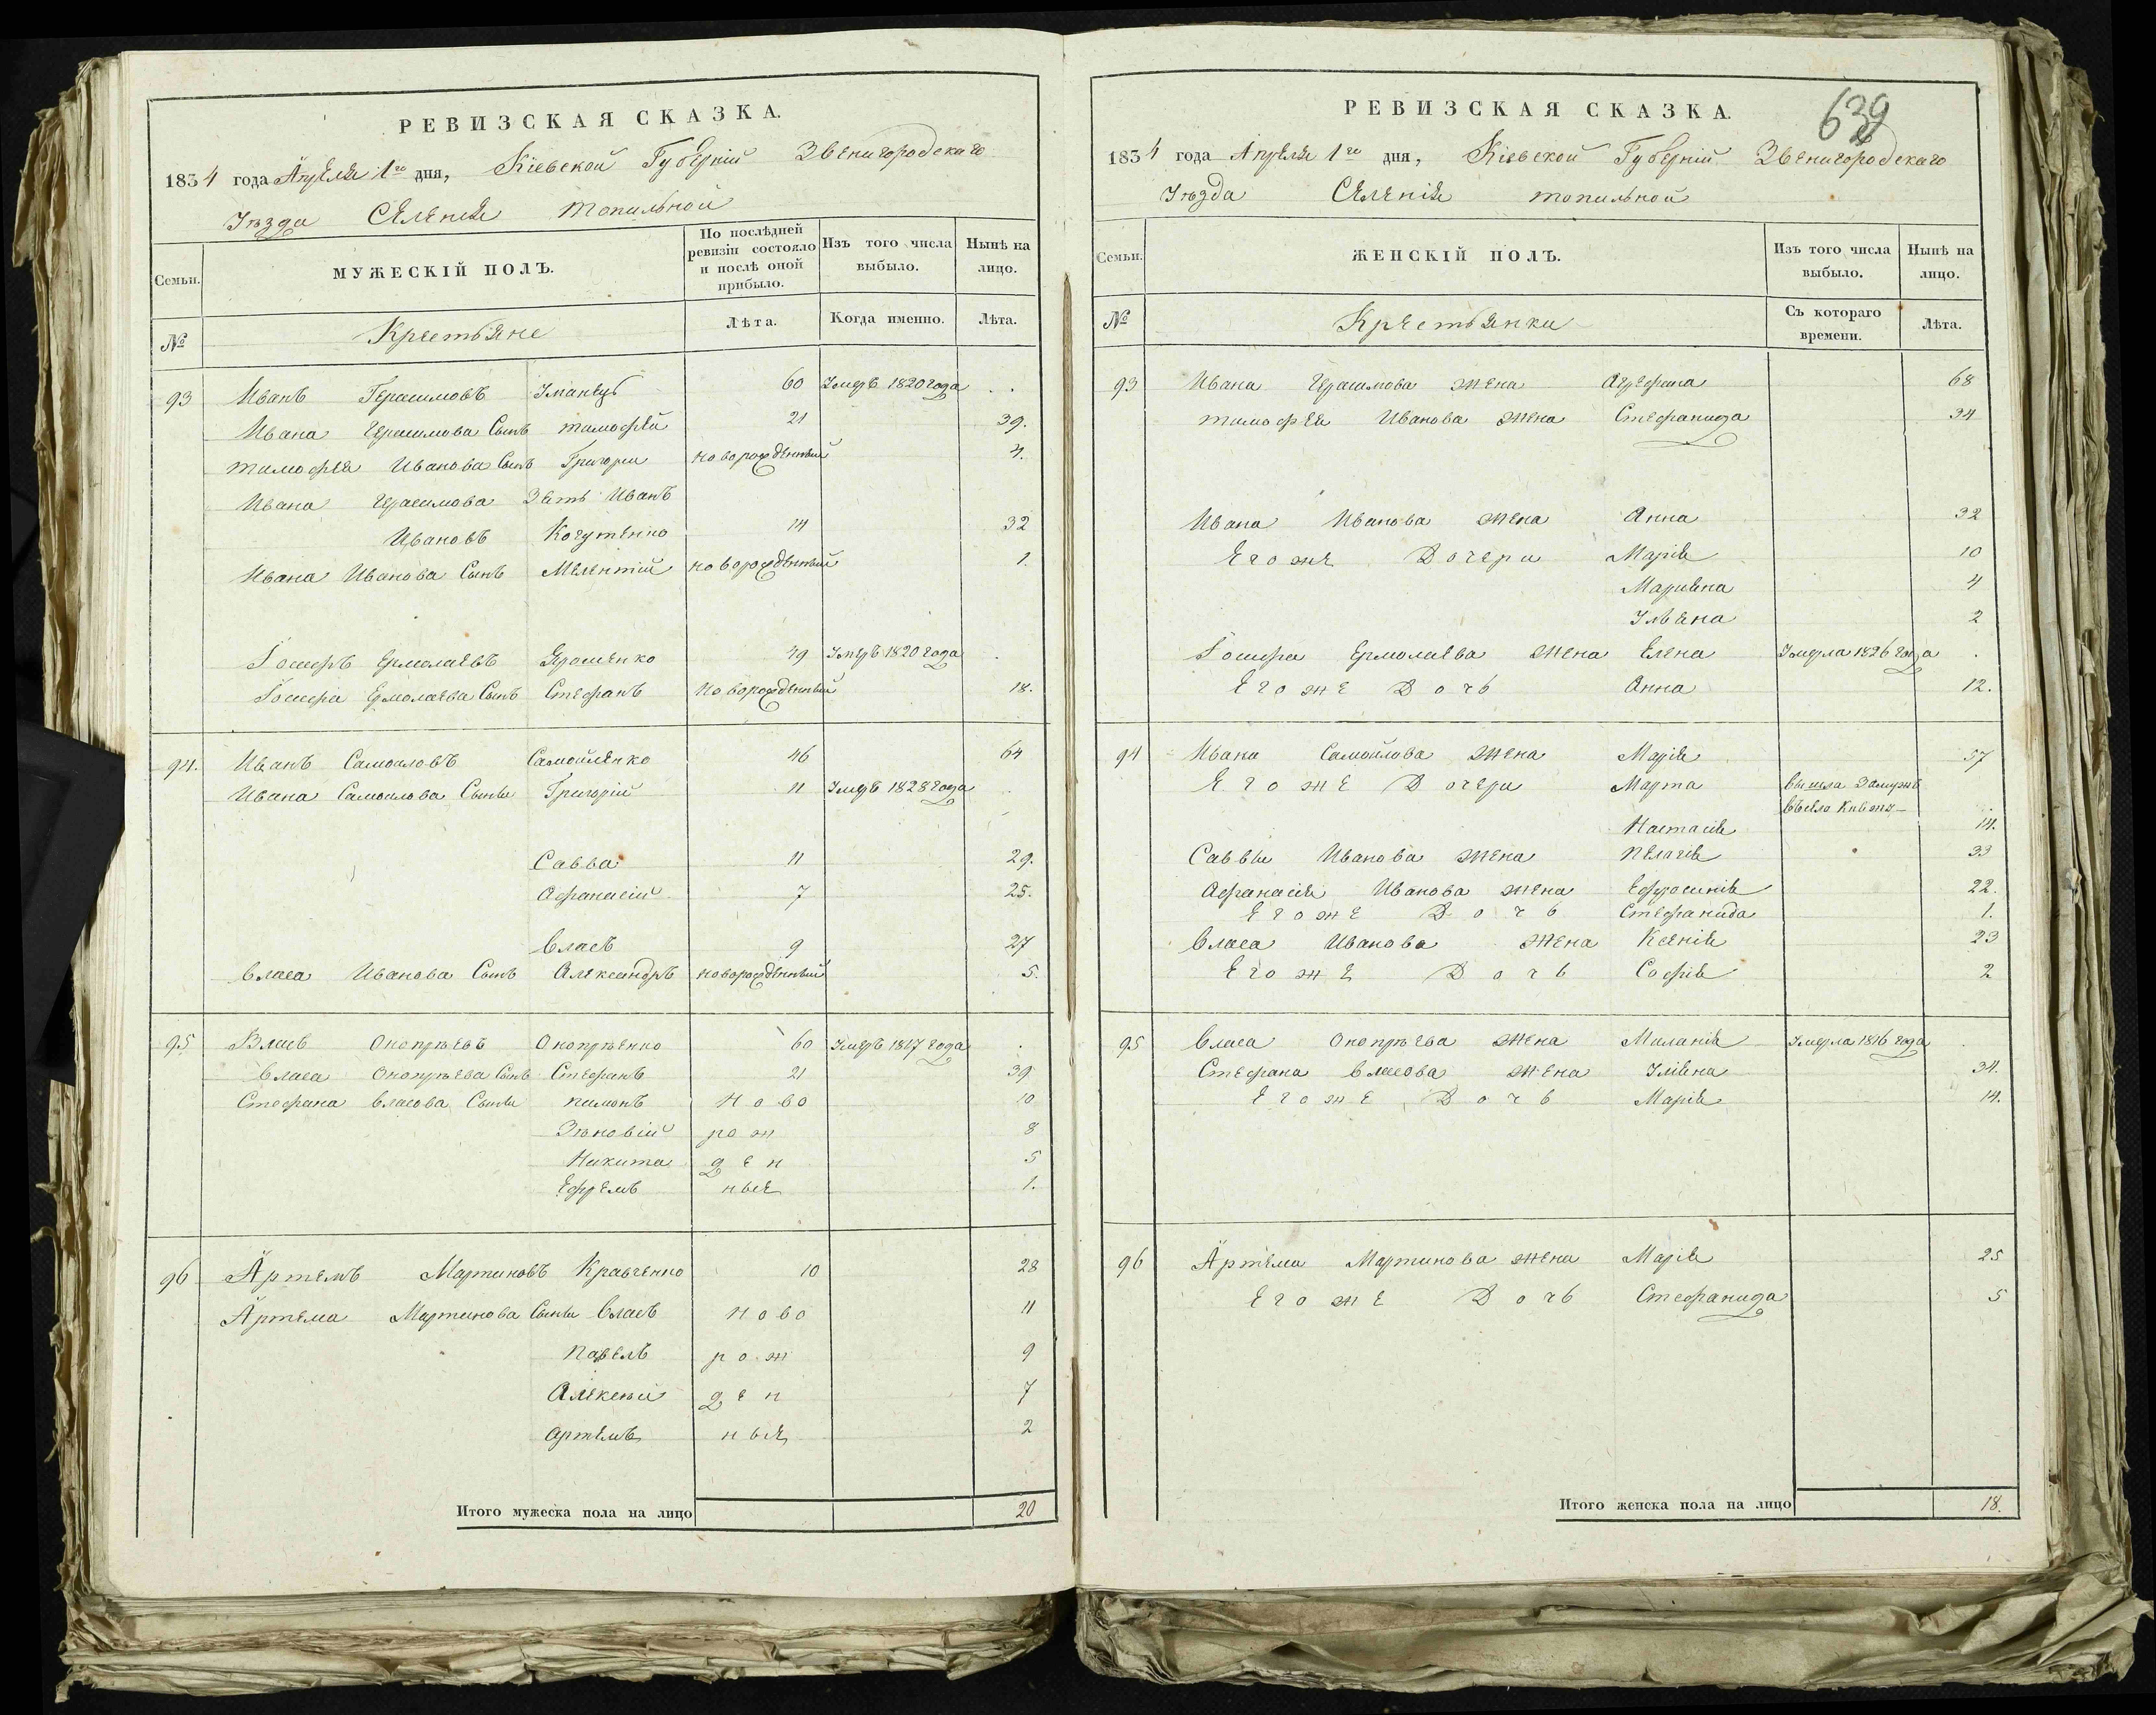 РЕВИЗСКАЯ СКАЗКА.
1834 года Апреля 1го дня, Кіевской Губерніи Звенигородскаго
Уѣзда Селенія Топильной
Семьи.
МУЖЕСКІЙ ПОЛЪ.
По послѣдней ревизіи состояло и послѣ оной прибыло.
Изъ того числа выбыло.
Нынѣ на лицо.
№ Крестьяне Лѣта. Когда именно. Лѣта.
93 Иванъ Герасимовъ 60 Умеръ 1820 года
Ивана Герасимова Сынъ тимофей 21 39.
тимофея Иванова Сынъ Григори новорожденный 4.
Ивана Герасимова Зять Иванъ
Ивановъ 14 32
Ивана Иванова Сынъ Мелентий новорожденный 1.
Ермолаевъ 49 Умеръ 1820 года
Ермолаева Сынъ Стефанъ новорожденный 18.
94. Иванъ Самоиловъ Самойленко 46 64
Ивана Самоилова Сыны Григорій 11 Умеръ 1828 года
Савва 11 29.
Афанасій 7 25.
Власъ 9 27
Власа Иванова Сынъ Александръ новорожденный 5.
95 Власъ Онопрѣевъ Онопрѣенко 60 Умеръ 1817 года
Власа Онопрѣева Сынъ Стефанъ 21 39
Стефана Власова Сыны пимонъ Ново 10
Зѣновій рож 8
Никита ден 5
Ефремъ ные 1.
96 Артемъ Мартиновъ Кравченко 10 28
Артема Мартинова Сыны Власъ Ново 11
павелъ рож 9
Алексѣй ден 7
Артемъ ные 2
Итого мужеска пола на лицо 20
639
РЕВИЗСКАЯ СКАЗКА.
1834 года Апреля 1го дня, Кіевской Губерніи Звенигородскаго
Уѣзда Селенія топильной
Семьи.
ЖЕНСКІЙ ПОЛЪ.
Изъ того числа выбыло.
Нынѣ на лицо.
№ Крестьянки Съ котораго времени. Лѣта.
93 Ивана Герасимова жена 68
тимофея Иванова жена Стефанида 34
Ивана Иванова жена Анна 32
Егоже Дочери Марія 10
Маріяна 4
Уляна 2
Ермолаева жена Елена Умерла 1826 года
Егоже Дочь Анна 12.
94 Ивана Самойлова жена Марія 57
Егоже Дочери Марта вышла замужъ
Настасія 14.
Саввы Иванова жена пелагія 33
Афанасія Иванова жена Ефросинія 22.
Егоже Дочь Стефанида 1.
Власа Иванова жена Ксенія 23
Егоже Дочь Софія 2
95 Власа Онопрѣева жена Миланія Умерла 1816 года
Стефана Власова жена Уліяна 34.
Егоже Дочь Марія 14.
96 Артема Мартинова жена Марія 25
Егоже Дочь Стефанида 5
Итого женска пола на лицо 18.